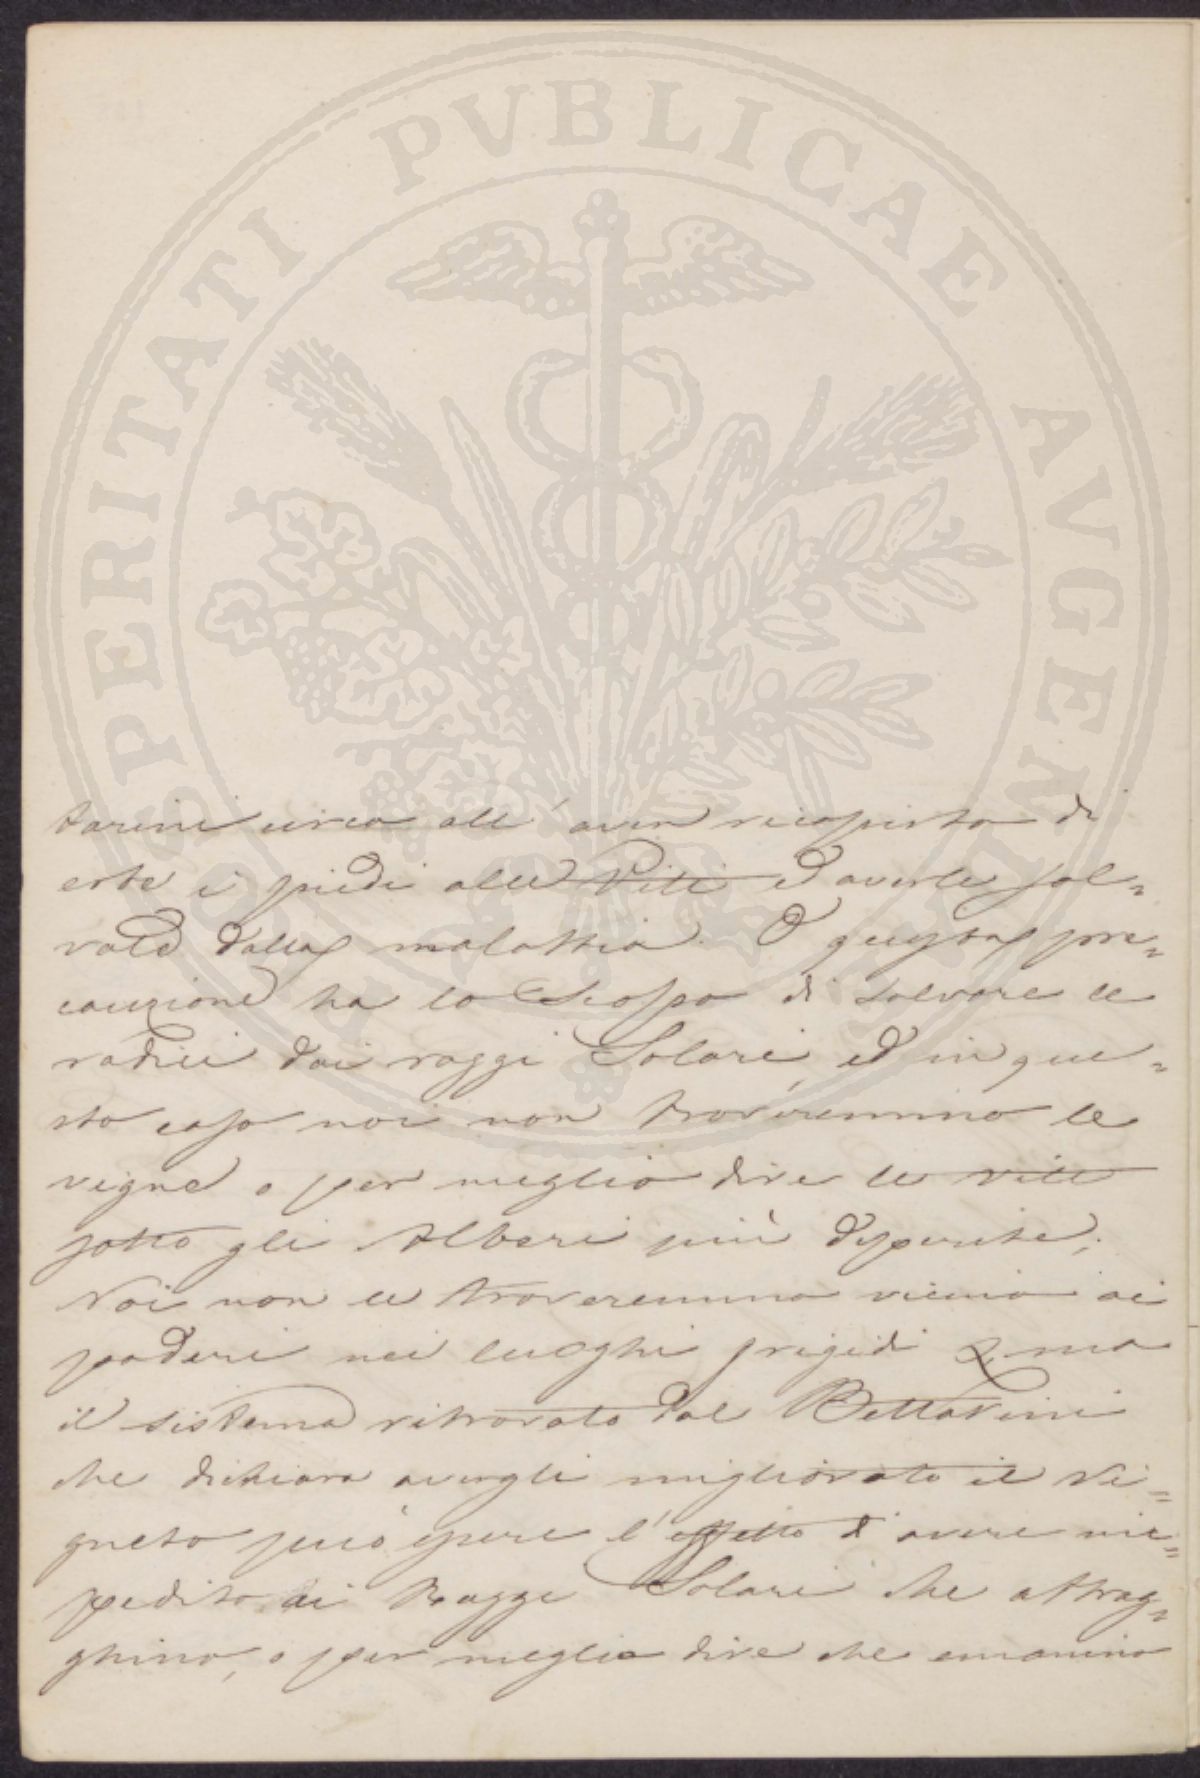 PROSPERITATI PUBLICAE AUGENDAE
tarini circa all' aver ricoperto di
erbe i piedi alle Viti ed averle sal=
vate dalla malattia. O questa pre=
cauzione ha lo Scopo di salvare le
radici dai raggi Solari, ed in que=
sto caso noi non troveremmo le
vigne o per meglio dire le viti
sotto gli Alberi più deperite;
Noi non le troveremmo vicino ai
poderi nei luoghi frigidi, ma
il sistema ritrovato dal Bettarini
che dichiara avergli migliorato il Vi=
gneto può essere l'effetto d'avere im=
pedito ai Raggi Solari che attrag=
ghino, o per meglio dire che emanino